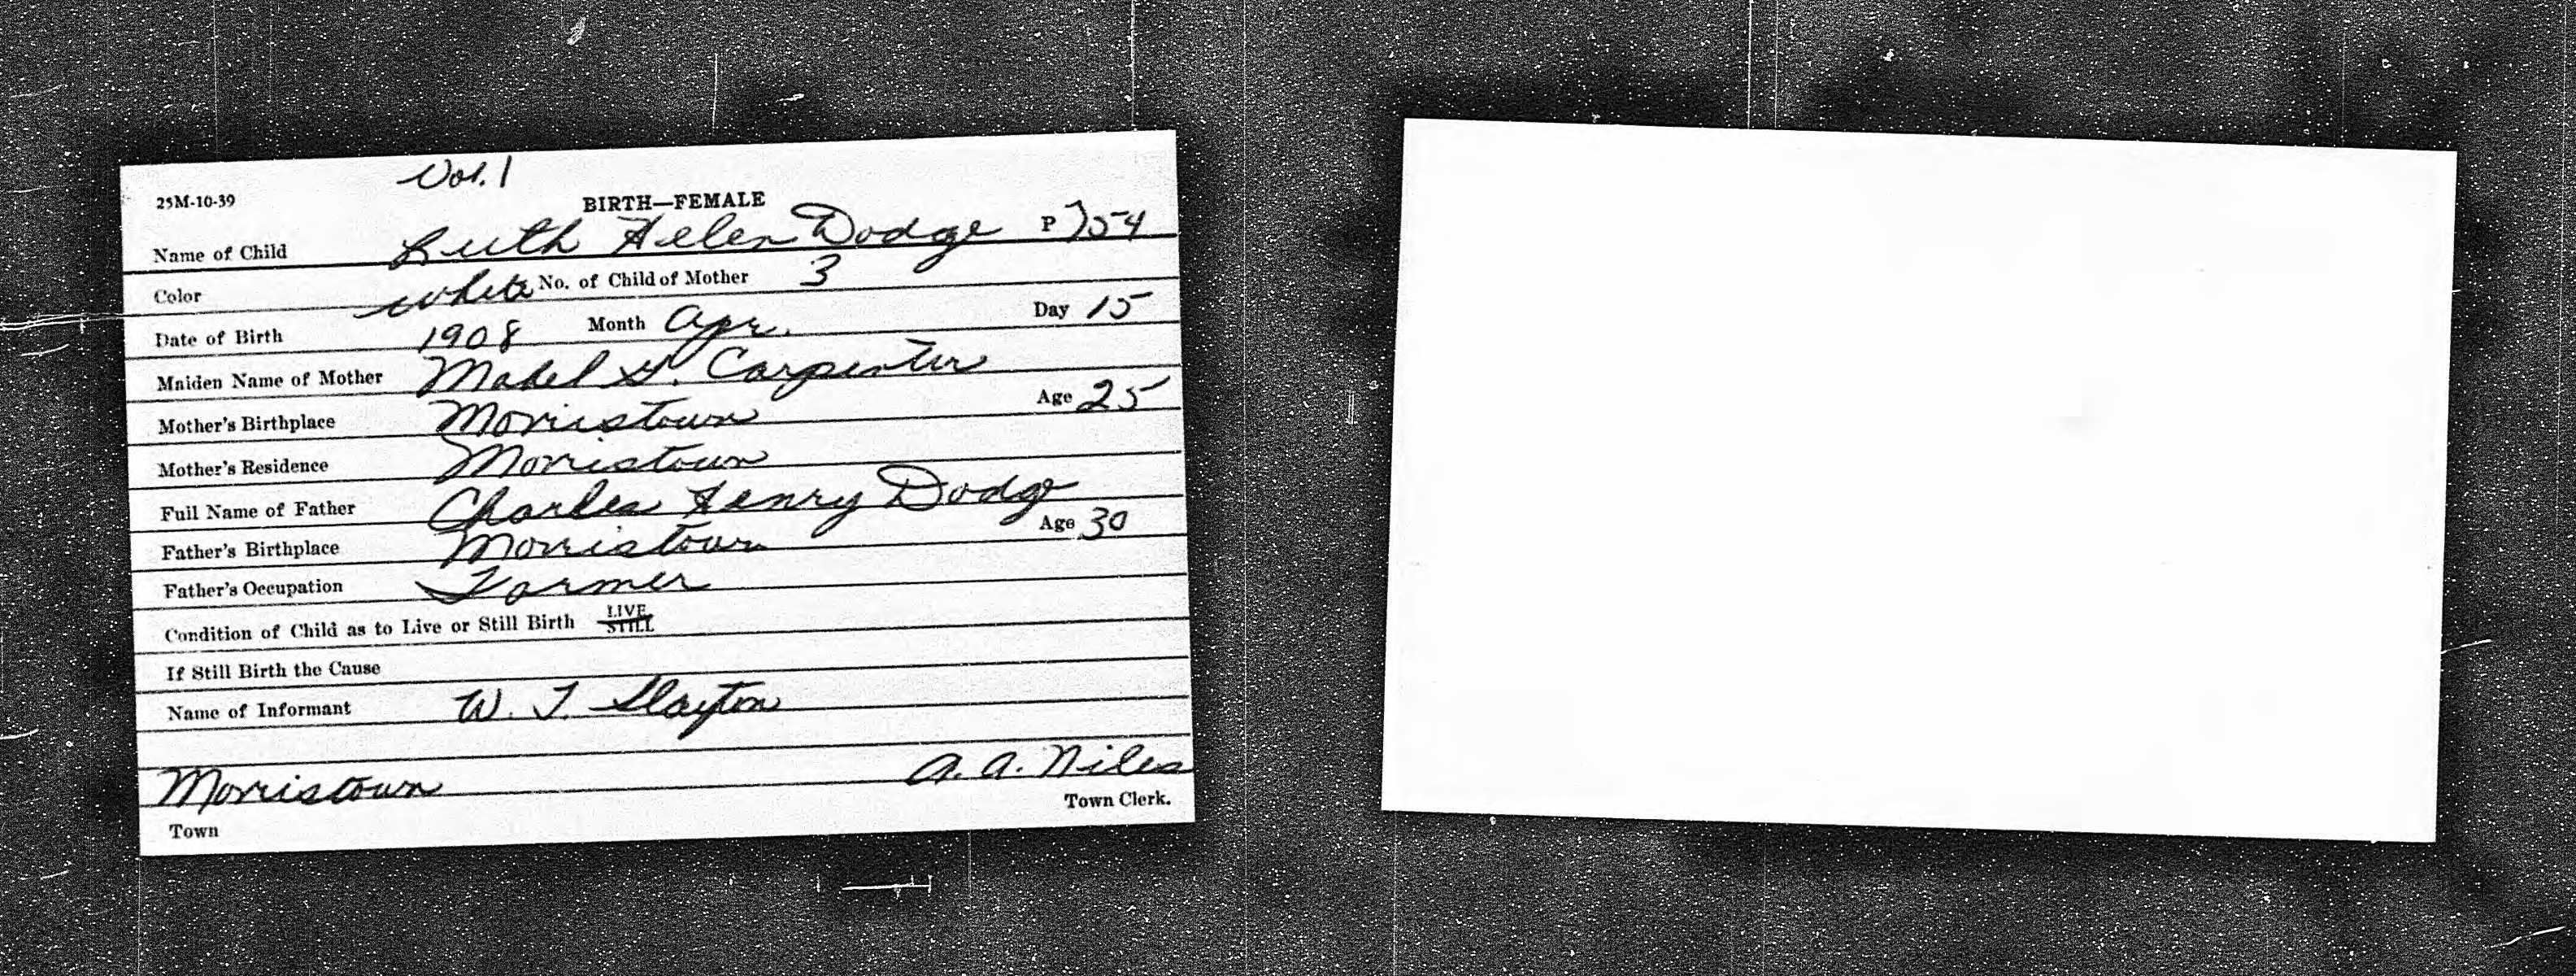 Vol. 1
25M-10-39
BIRTH—FEMALE
Name of Child Ruth Helen Dodge P 754
Color white No. of Child of Mother 3
Date of Birth 1908 Month Apr. Day 15
Maiden Name of Mother Mabel G. Carpenter
Mother's Birthplace Morristown Age 25
Mother's Residence Morristown
Full Name of Father Charles Henry Dodge
Father's Birthplace Morristown Age 30
Father's Occupation Farmer
Condition of Child as to Live or Still Birth LIVE STILL
If Still Birth the Cause
Name of Informant W. T. Slayton
Morristown A. A. Niles
Town Clerk.
Town